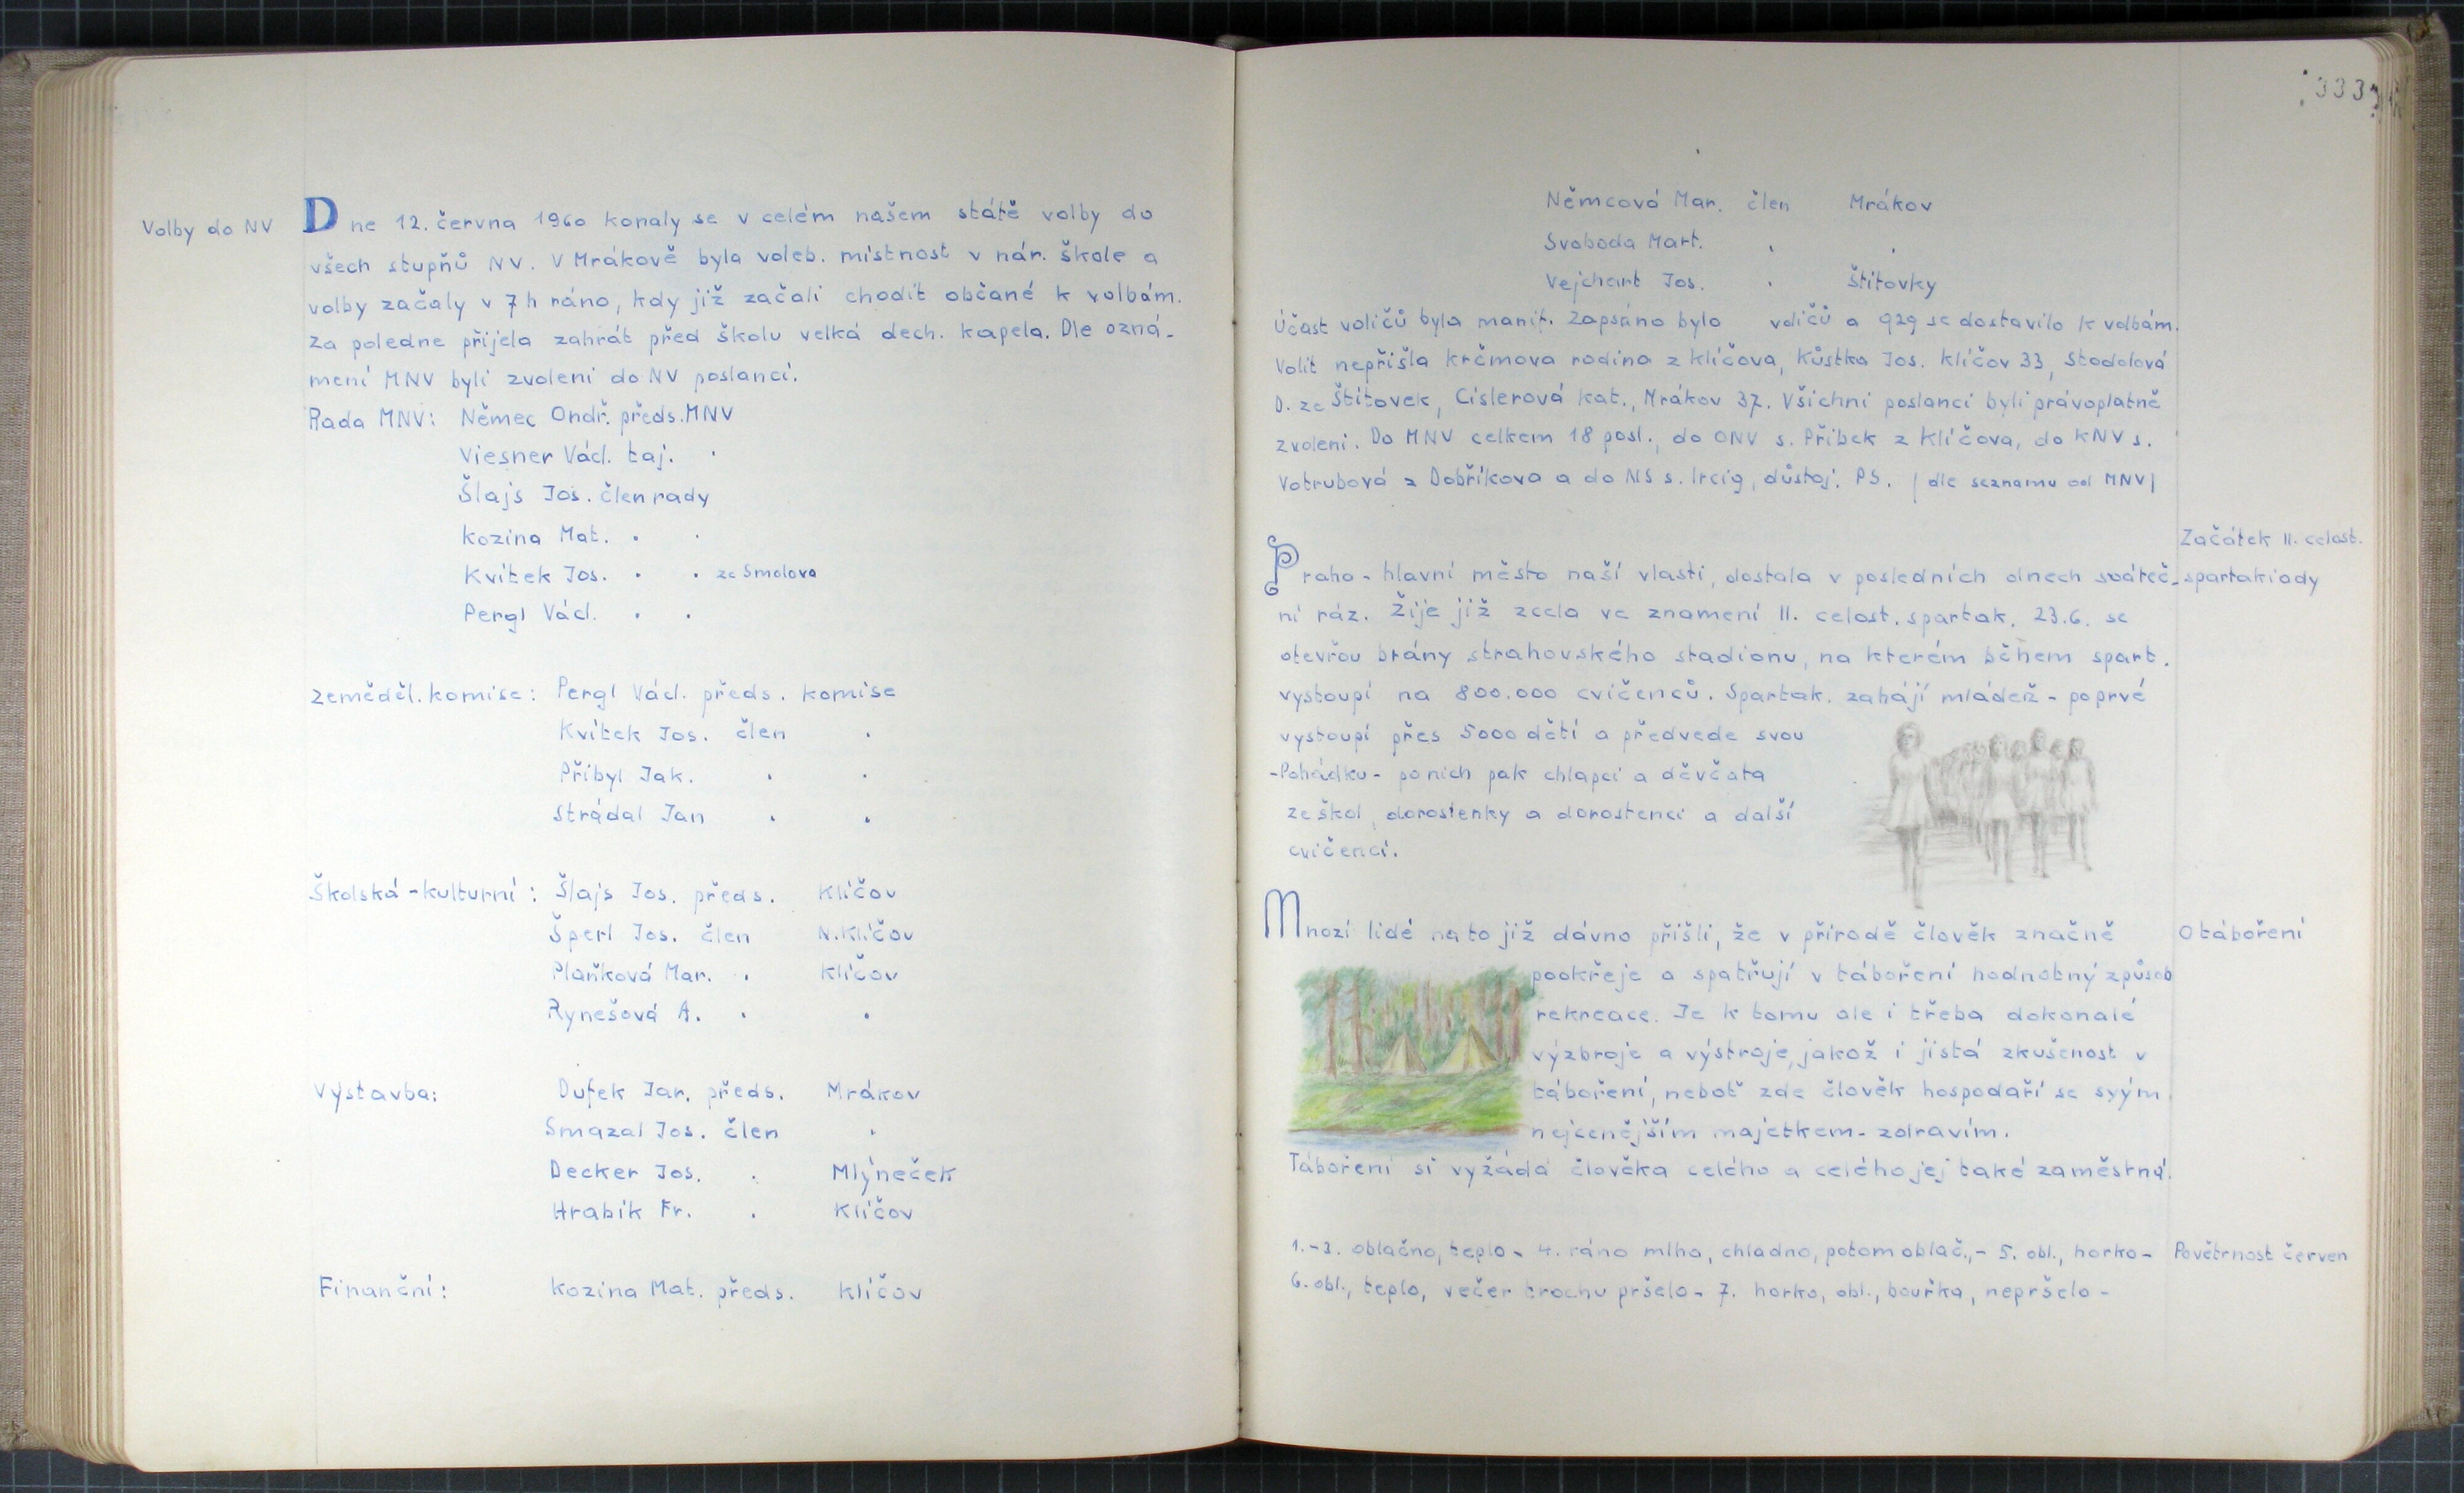 Volby do NV
Dne 12. června 1960 konaly se v celém našem státě volby do
všech stupňů NV. V Mrákově byla voleb. místnost v nár. škole a
volby začaly v 7 h ráno, kdy již začali chodit občané k volbám.
Za poledne přijela zahrát před školu velká dech. kapela. Dle ozná-
mení MNV byli zvoleni do NV poslanci.
Rada MNV: Němec Ondř. předs. MNV
Viesner Václ. taj. .
Šlajs Jos. člen rady
Kozina Mat. . .
Kvítek Jos. . . ze Smolova
Pergl Václ. . .
Zeměděl. komise: Pergl Václ. předs. komise
Kvítek Jos. člen .
Přibyl Jak. . .
Strádal Jan . .
Školská-kulturní: Šlajs Jos. předs. Klíčov
Šperl Jos. člen N.Klíčov
Plaňková Mar. . Klíčov
Rynešová A. . .
Výstavba: Dufek Jar. předs. Mrákov
Smazal Jos. člen .
Decker Jos. . Mlýneček
Hrabík Fr. . Klíčov
Finanční: Kozina Mat. předs. Klíčov
333
Němcová Mar. člen Mrákov
Svoboda Mart. . .
Vejchart Jos. . Štítovky
Účast voličů byla manif. Zapsáno bylo voličů a 929 se dostavilo k volbám.
Volit nepřišla Krčmova rodina z Klíčova, Kůstka Jos. Klíčov 33, Stodolová
D. ze Štítovek, Cislerová Kat., Mrákov 37. Všichni poslanci byli právoplatně
zvoleni. Do MNV celkem 18 posl., do ONV s. Příbek z Klíčova, do KNV s.
Votrubová z Dobříkova a do NS s. Ircig, důstoj. PS. /dle seznamu od MNV/
Začátek II. celost.
spartakiady
Praha - hlavní město naší vlasti, dostala v posledních dnech sváteč-
ní ráz. Žije již zcela ve znamení II. celost. spartak. 23.6. se
otevřou brány strahovského stadionu, na kterém během spart.
vystoupí na 800.000 cvičenců. Spartak. zahájí mládež - poprvé
vystoupí přes 5000 dětí a předvede svou
-Pohádku- po nich pak chlapci a děvčata
ze škol, dorostenky a dorostenci a další
cvičenci.
O táboření
Mnozí lidé na to již dávno přišli, že v přírodě člověk značně
pookřeje a spatřují v táboření hodnotný způsob
rekreace. Je k tomu ale i třeba dokonalé
výzbroje a výstroje, jakož i jistá zkušenost v
táboření, neboť zde člověk hospodaří se svým
nejcenějším majetkem - zdravím.
Táboření si vyžádá člověka celého a celého jej také zaměstná.
Povětrnost červen
1.-3. oblačno, teplo - 4. ráno mlha, chladno, potom oblač., - 5. obl., horko -
6. obl., teplo, večer trochu pršelo - 7. horko, obl., bouřka, nepršelo -